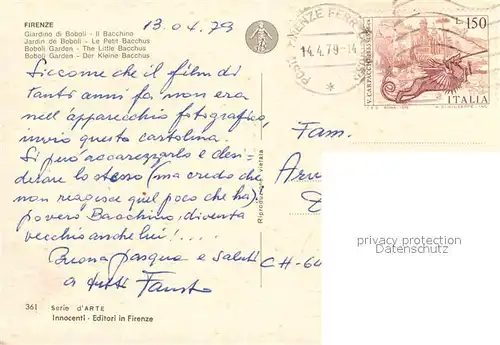 FIRENZE
Giardino di Boboli - Il Bacchino
Jardin de Boboli - Le Petit Bacchus
Boboli Garden - The Little Bacchus
Boboli Garden - Der Kleine Bacchus
13.04.79
Siccome che il film di
tanti anni fa non era
nell'apparecchio fotografico,
invio questa cartolina.
Si può accarezzarlo e desi-
derare lo stesso (ma credo che
non reagisce quel poco che ha)
povero Bacchino, diventa
vecchio anche lui!....
Buona Pasqua e saluti
a tutti Fausto
361 Serie d'ARTE
Innocenti - Editori in Firenze
Riproduzione vietata
FIRENZE FERR
14.4.79-14
L.150
V. CARPACCIO
ITALIA
Fam.
CH-64
privacy protection
Datenschutz